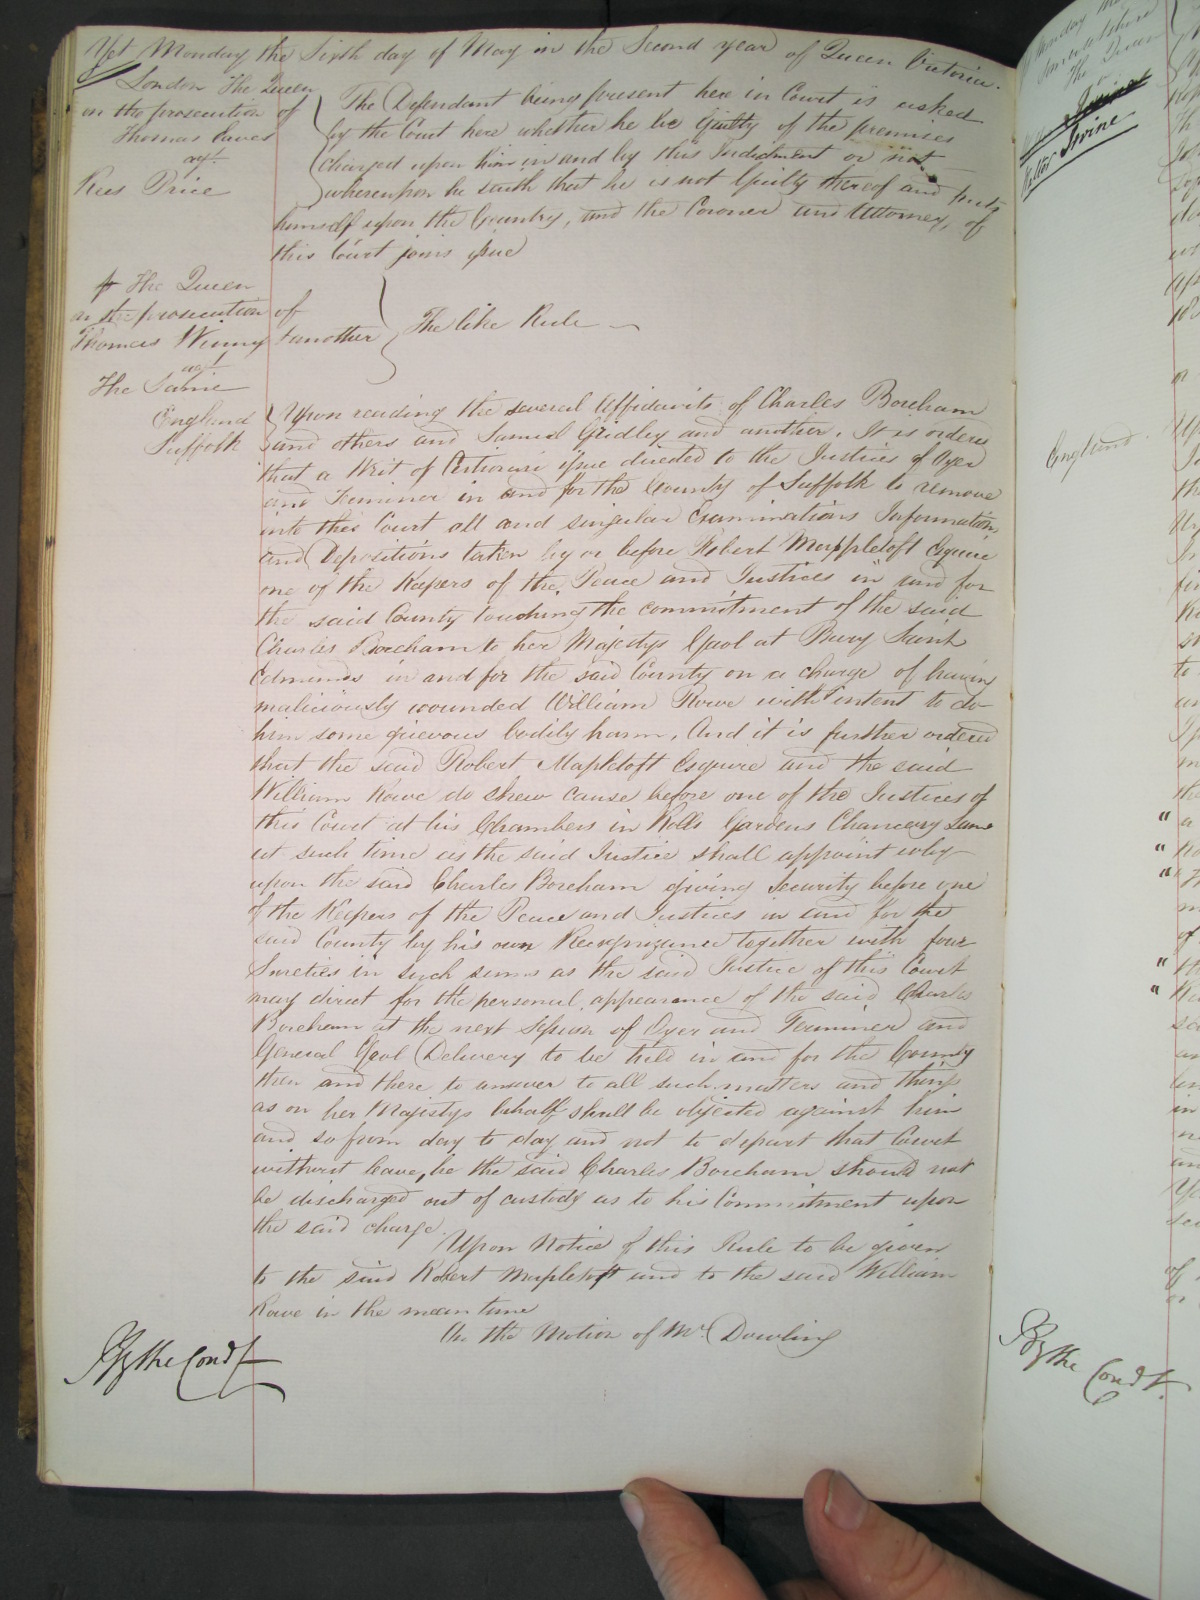 Yet Monday the Sixth day of May in the Second year of Queen Victoria.
London The Queen
on the prosecution of
Thomas
agt
Rees Price
The Defendant being present here in Court is asked
by the Court here whether he be Guilty of the premises
charged upon him in and by this Indictment or not
whereupon he saith that he is not Guilty thereof and puts
himself upon the Country, and the Coroner and Attorney, of
this Court joins issue
The Queen
on the prosecution of
Thomas Winny & another
agt
The Same
The like Rule
England
Suffolk
Upon reading the several Affidavits of Charles Boreham
and others and Samuel Gridley and another. It is ordered
that a Writ of Certiorari issue directed to the Justices of Oyer
and Terminer in and for the County of Suffolk to remove
into this Court all and singular Examinations Informations
and Depositions taken by or before Robert Mappletoft Esquire
one of the Keepers of the Peace and Justices in and for
the said County touching the commitment of the said
Charles Boreham to her Majestys Gaol at Bury Saint
Edmunds in and for the said County on a charge of having
maliciously wounded William Rowe with intent to do
him some grievous bodily harm. And it is further ordered
that the said Robert Mapletoft Esquire and the said
William Rowe do shew cause before one of the Justices of
this Court at his Chambers in Rolls Gardens Chancery Lane
at such time as the said Justice shall appoint why
upon the said Charles Boreham giving Security before one
of the Keepers of the Peace and Justices in and for the
said County by his own Recognizance together with four
Sureties in such sums as the said Justice of this Court
may direct for the personal appearance of the said Charles
Boreham at the next Session of Oyer and Terminer and
General Gaol Delivery to be held in and for the County
then and there to answer to all such matters and things
as on her Majestys behalf shall be objected against him
and so from day to day and not to depart that Court
without leave, he the said Charles Boreham should not
be discharged out of custody as to his Commitment upon
the said charge.
Upon Notice of this Rule to be given
to the said Robert Mapletoft and to the said William
Rowe in the mean time
On the Motion of Mr. Dowling
By the Court
The Queen
Irvine
England
By the Court.